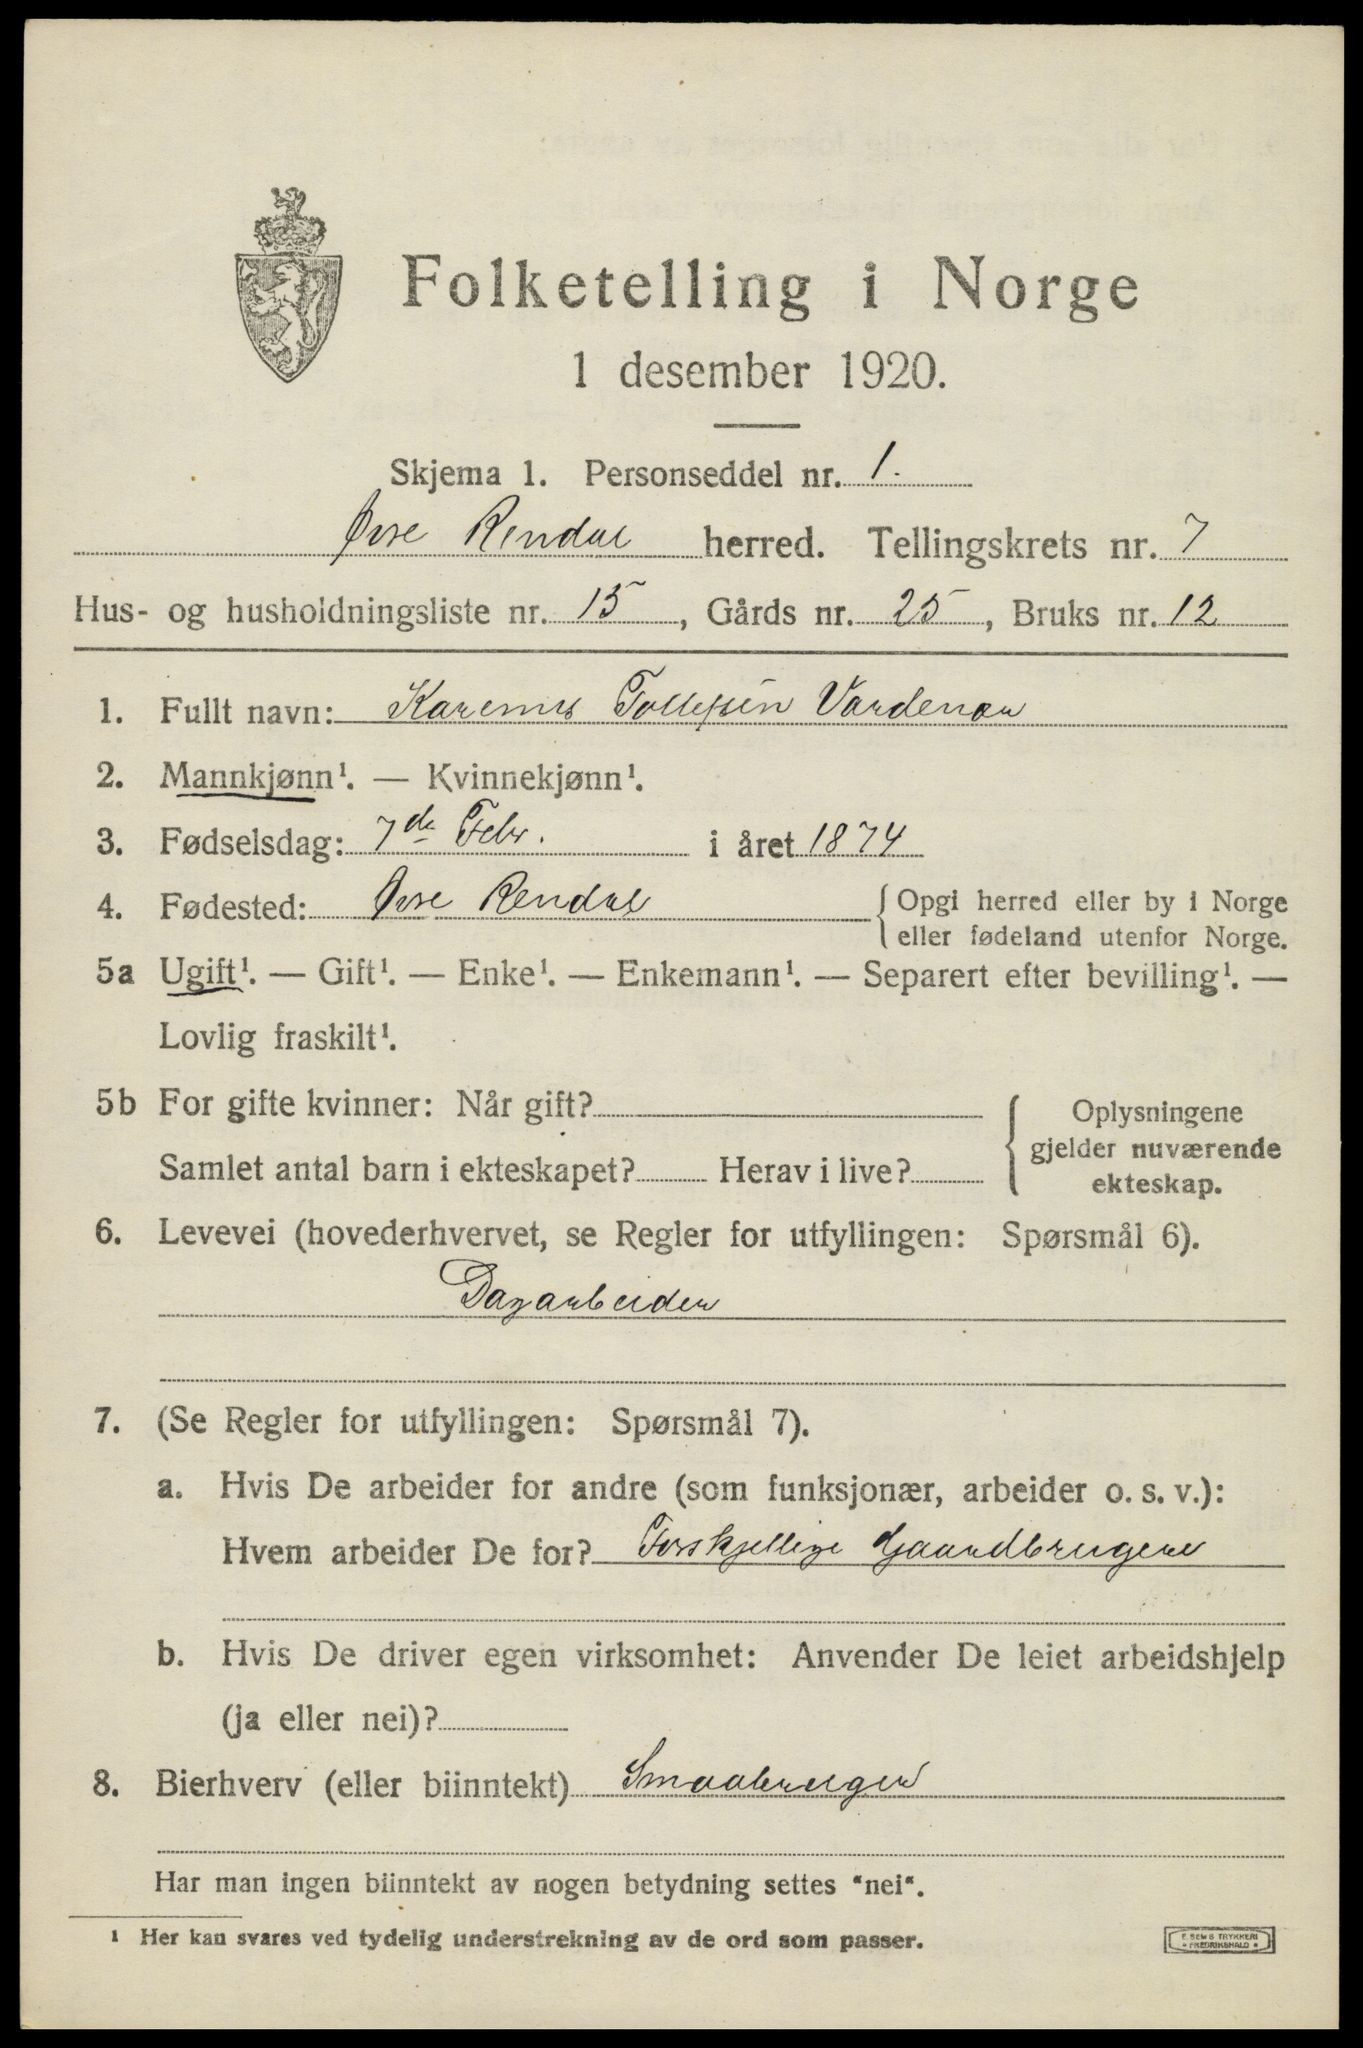 Folketelling i Norge
1 desember 1920.
Skjema 1. Personseddel nr. 1.
Øvre Rendal herred. Tellingskrets nr. 7
Hus- og husholdningsliste nr. 15, Gårds nr. 25, Bruks nr. 12
1. Fullt navn: Karenus Tollefsen Vardenær
2. Mannkjønn¹. — Kvinnekjønn¹.
3. Fødselsdag: 7de Febr. i året 1874
4. Fødested: Øvre Rendal {Opgi herred eller by i Norge
eller fødeland utenfor Norge.
5a Ugift¹. — Gift¹. — Enke¹. — Enkemann¹. — Separert efter bevilling¹. —
Lovlig fraskilt¹.
5b For gifte kvinner: Når gift?
Samlet antal barn i ekteskapet? Herav i live?
{Oplysningene
gjelder nuværende
ekteskap.
6. Levevei (hovederhvervet, se Regler for utfyllingen: Spørsmål 6).
Dagarbeider
7. (Se Regler for utfyllingen: Spørsmål 7).
a. Hvis De arbeider for andre (som funksjonær, arbeider o. s. v.):
Hvem arbeider De for? Forskjellige Gaardbrugere
b. Hvis De driver egen virksomhet: Anvender De leiet arbeidshjelp
(ja eller nei)?
8. Bierhverv (eller biinntekt) Smaabruger
Har man ingen biinntekt av nogen betydning settes "nei".
¹ Her kan svares ved tydelig understrekning av de ord som passer.
E. SEMS TRYKKERI
FREDRIKSHALD